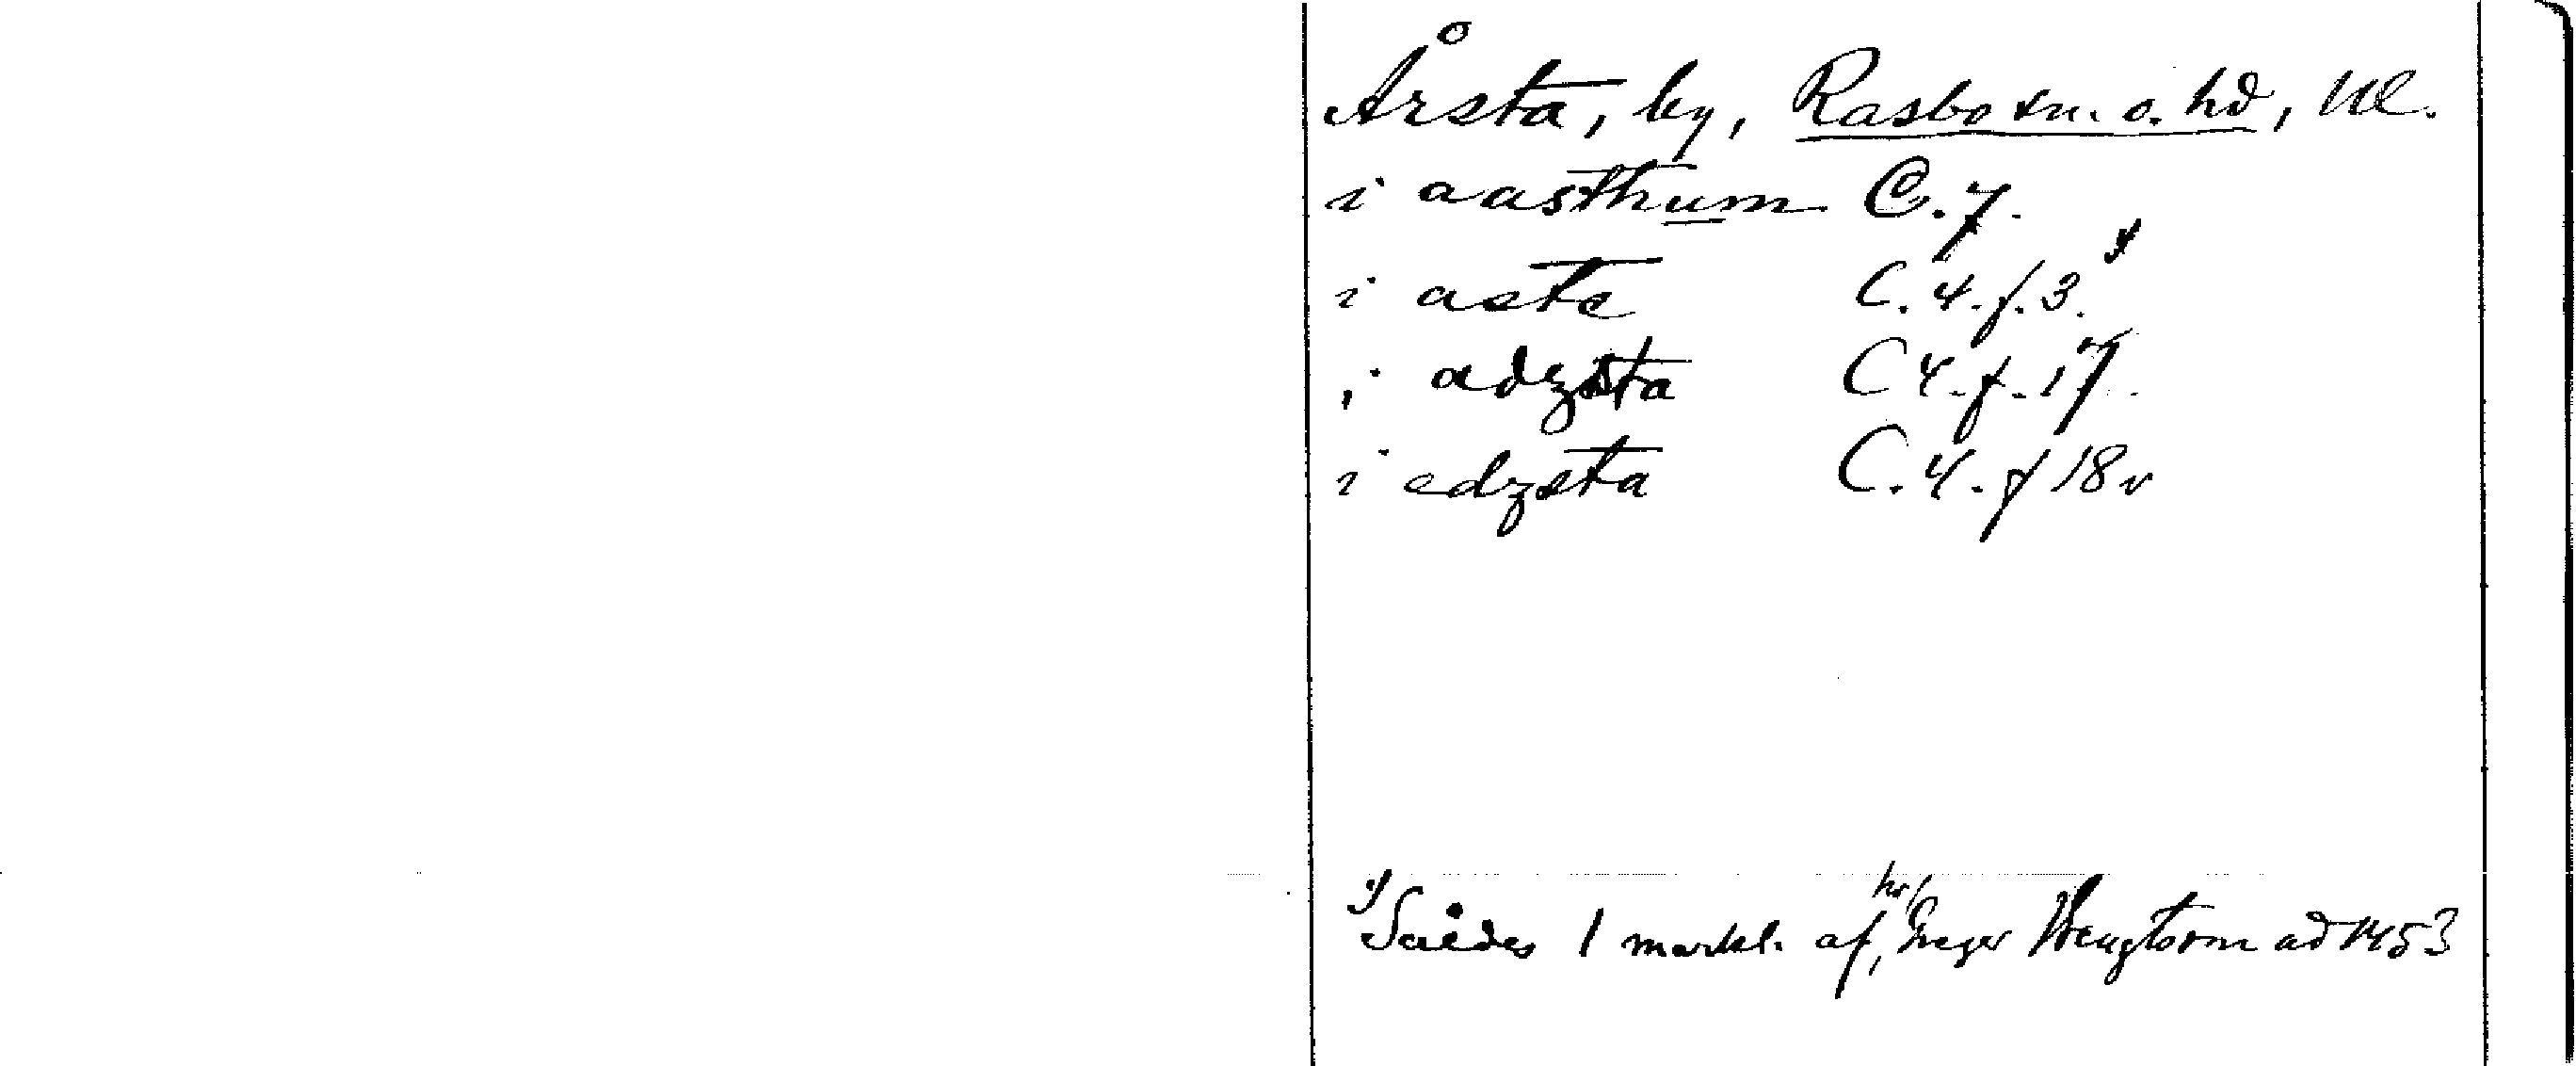 Årsta, by, Rasbo sn. o. hd, Ul.
i aasthum C. 7.
i aste C. 4. f. 3. x)
i adzsta C 4. f. 17.
i edzsta C. 4. f 18 v
x) Såldes 1 markl. af, hr Greger Bengtsson ad 1453